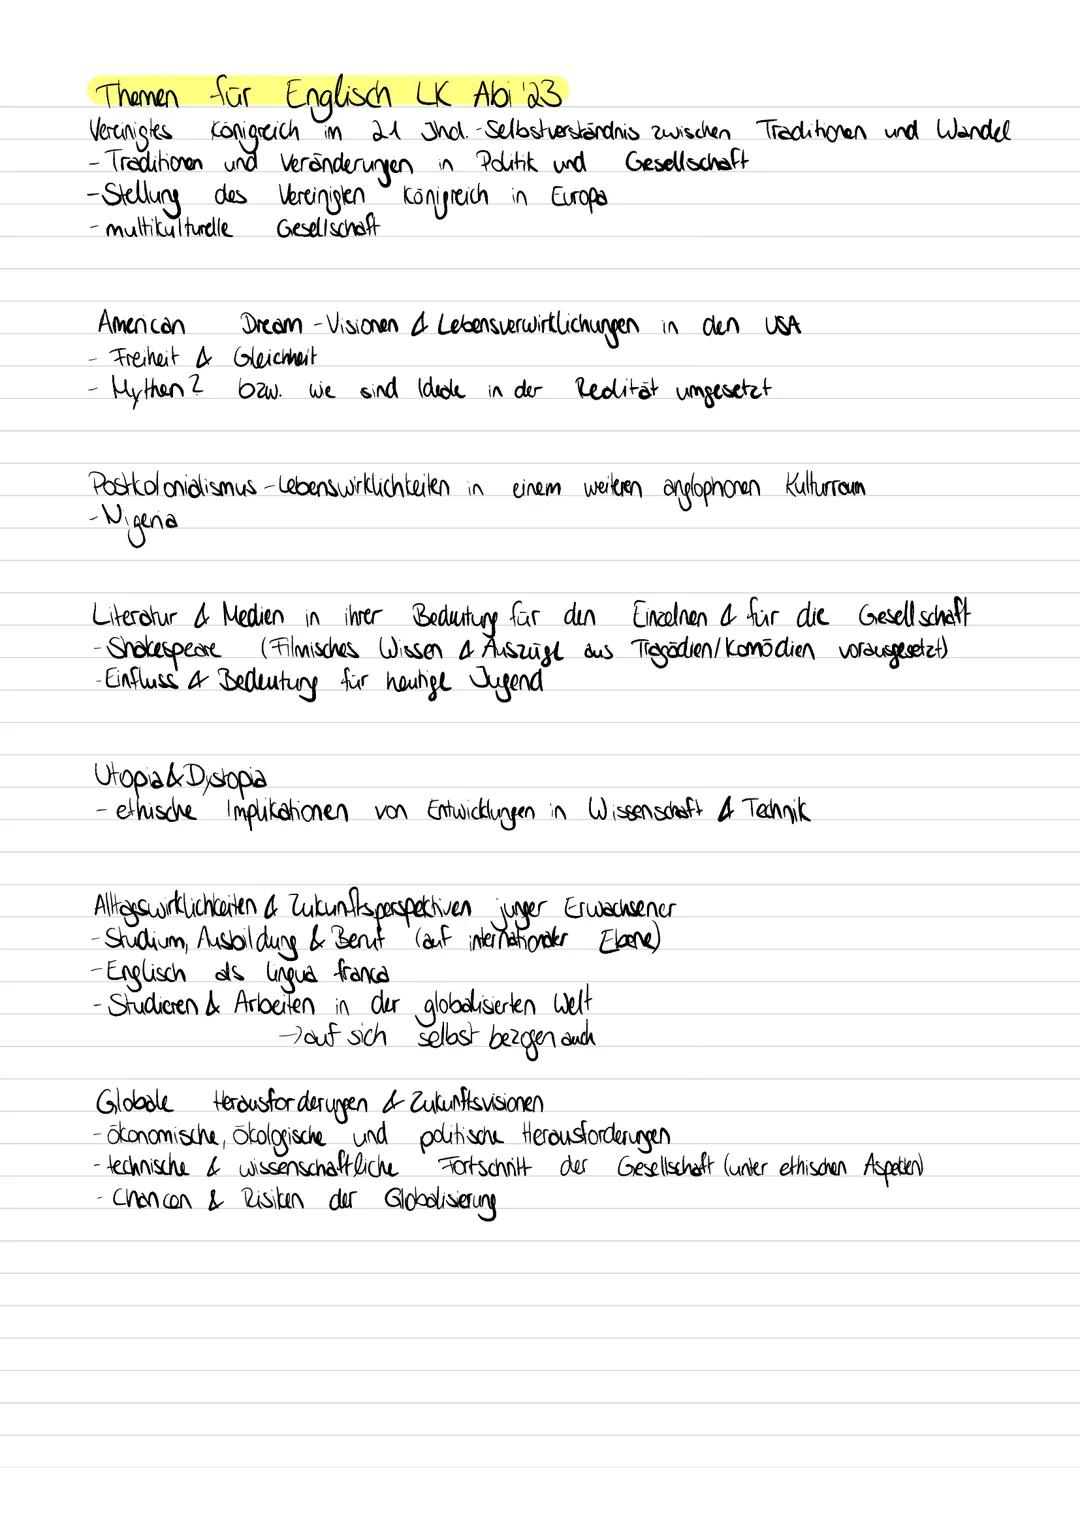 Themen für Englisch LK Abi '23
Vereinigtes Königreich im 21 Jhd. - Selbstverständnis zwischen Traditionen und Wandel
- Traditionen und Veränderungen in Politik und Gesellschaft
- Stellung des Vereinigten Königreich in Europa
- multikulturelle Gesellschaft
American Dream - Visionen & Lebensverwirklichungen in den USA
- Freiheit & Gleichheit
- Mythen? bzw. wie sind Ideale in der Realität umgesetzt
Postkolonialismus - Lebenswirklichkeiten in einem weiteren anglophonen Kulturraum
- Nigeria
Literatur & Medien in ihrer Bedeutung für den Einzelnen & für die Gesellschaft
- Shakespeare (Filmisches Wissen & Auszüge aus Tragödien/Komödien vorausgesetzt)
- Einfluss & Bedeutung für heutige Jugend
Utopia & Dystopia
- ethische Implikationen von Entwicklungen in Wissenschaft & Technik
Alltagswirklichkeiten & Zukunftsperspektiven junger Erwachsener
- Studium, Ausbildung & Beruf (auf internationaler Ebene)
- Englisch als lingua franca
- Studieren & Arbeiten in der globalisierten Welt
→ auf sich selbst bezogen auch
Globale Herausforderungen & Zukunftsvisionen
- ökonomische, ökologische und politische Herausforderungen
- technische & wissenschaftliche Fortschritt der Gesellschaft (unter ethischen Aspekten)
- Chancen & Risiken der Globalisierung